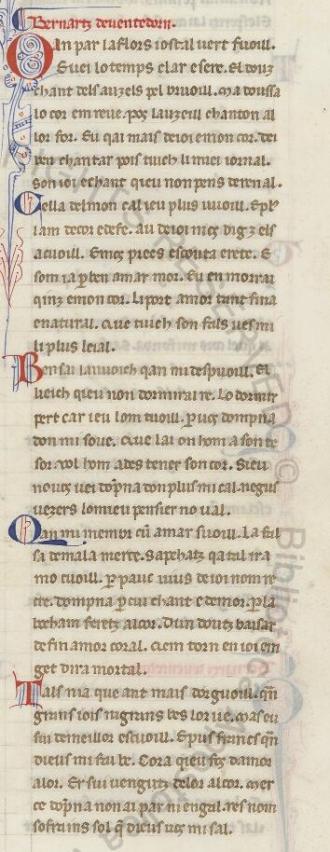 Bernartz deuentedorn.
Qan par laflors iostal uert fuoill.
Euei lo temps clar e sere. El douz
chant dels auzels pel bruoill. ma doussa
lo cor em reue. pos lauzeill chanton al
lor for. Eu qai mais de ioi emon cor. dei
ben chantar pois tuich li miei iornal.
son ioi echant qieu non pens de ren al.
Cella delmon cal ieu plus uuoill. Epl9
lam decor edefe. au de ioi mos digz els
acuoill. Emos precs escouta erete. E
som ia per ben amar mor. Eu en morrai
qinz emon cor. li port amor tant fina
enatural. que tuich son fals ues mi
li plus leial.
Ben sai la nuoich qan mi despuoill. El
lieich qieu non dormirai re. Lo dormir
pert car ieu lom tuoill. per uos dompna
don mi soue. Que lai on hom a son te
sor. uol hom ades tener son cor. Sieu
nouos uei dopna don plus mi cal. negus
uezers lo mieu pensier no ual.
Qan mi membr cum amar suoill. La fal
sa de mala merce. Sapchatz qa tal ira
mo cuoill. per pauc uius de ioi nom re
cre. dompna per cui chant e demor. per la
bocham feretz al cor. Dun doutz baisar
de fin amor coral. Qem torn en ioi em
get dira mortal.
Tals nia que ant mais dorguoill. qan
grans iois ni grans bes lor ue. mas eu
sui de meillor escuoill. E plus francs qan
dieus mi fai be. Cora qieu fos damor
alor. Er sui uengutz de lor al cor. mer
ce dopna non ai par ni engal. res nom
sofranis sol qe dieus uos mi sal.